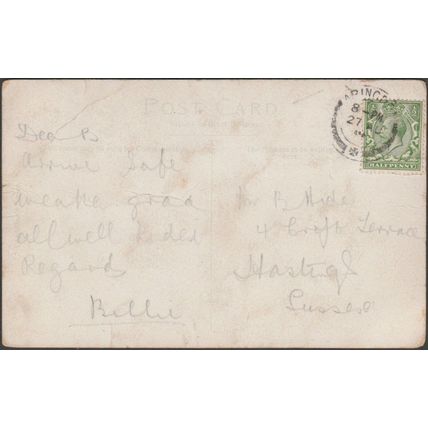 POST CARD
ABINGD
8 PM
27
HALFPENNY
Dear B
Arrive Safe
weake grad
all well Kides
Regard
Billie
Mr B Hide
4 Croft Terrace
Hastings
Sussex